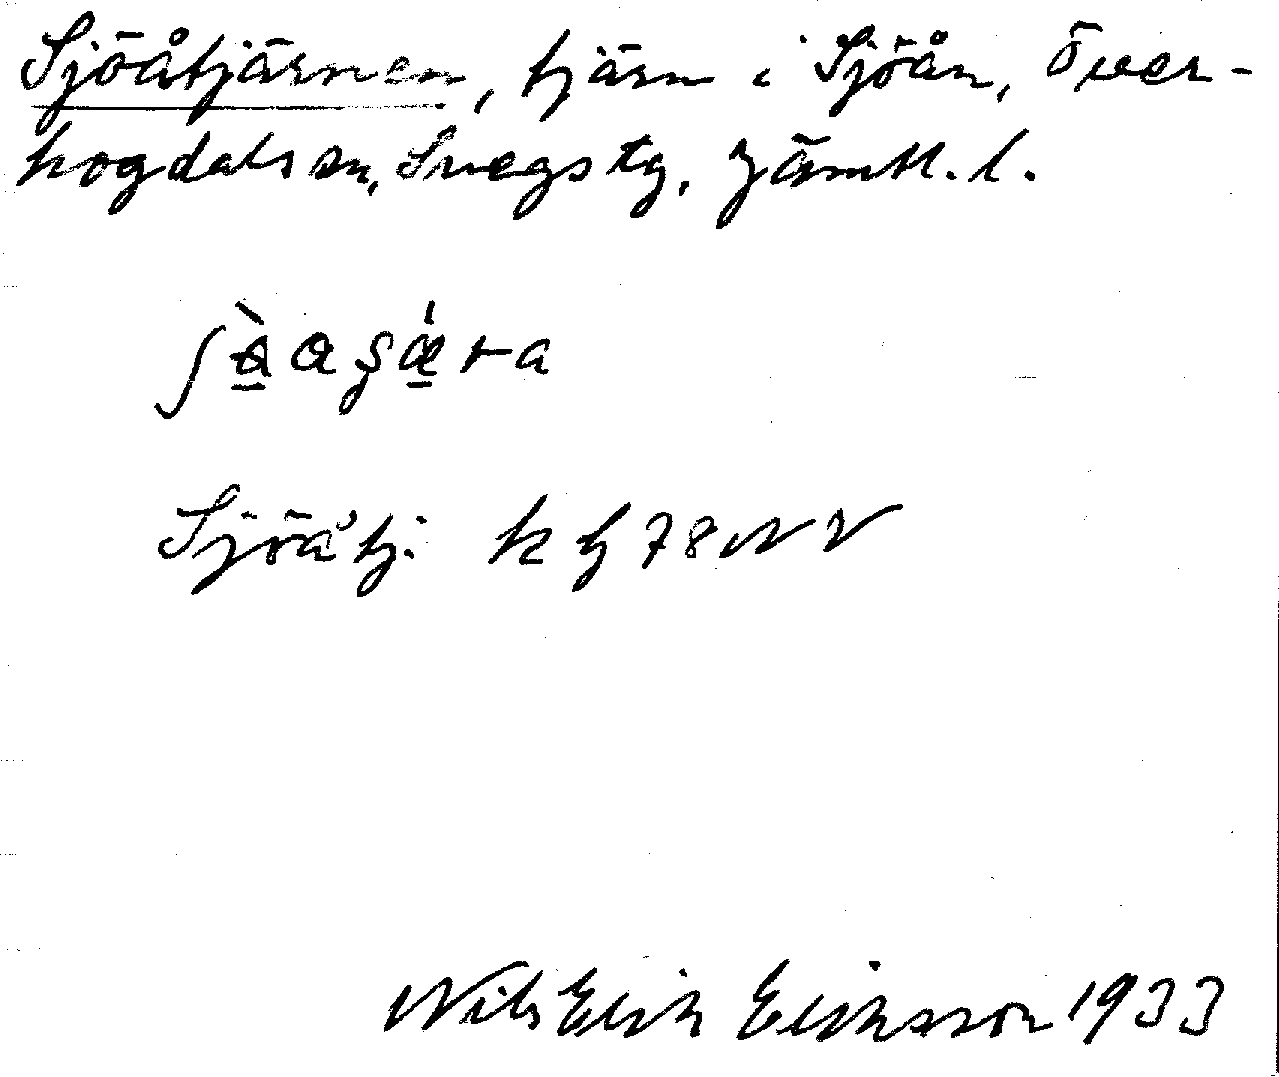 Sjöåtjärnen, tjärn i Sjöån, Över-
hogdals sn, Svegs tg, Jämtl. l.
Sjöåtj. k bl 78 NV
Nils Erik Eriksson 1933